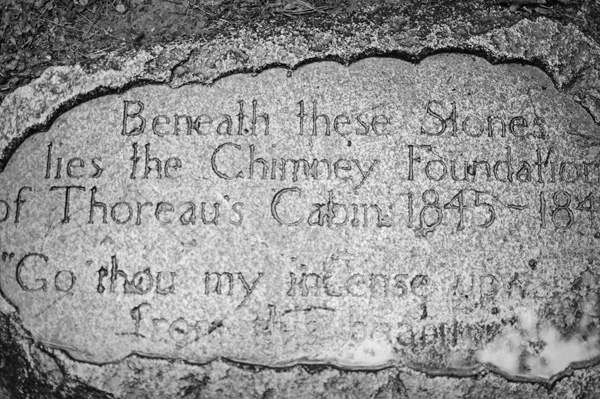 Beneath these Stones
lies the Chimney Foundation
of Thoreau's Cabin 1845-184
"Go thou my incense upw
from this